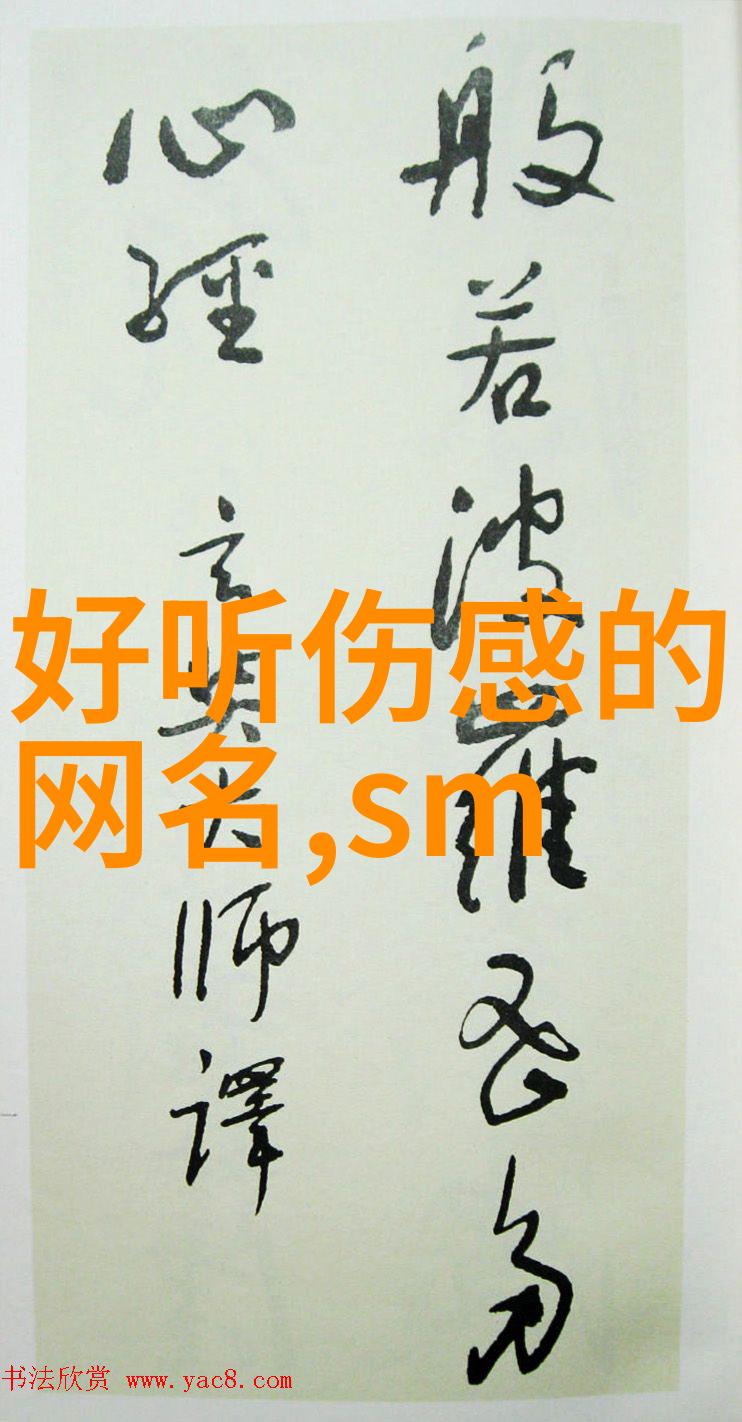 般若波羅蜜多
心經 玄奘大师譯
好听伤感的
网名,sm
书法欣赏 www.yac8.com